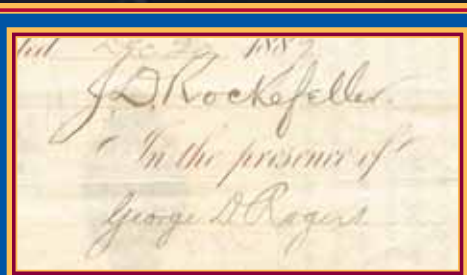 188
J.D. Rockefeller.
In the presence of
George D. Rogers